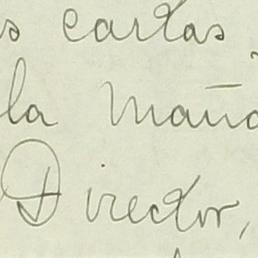 s cartas
la Maña
Director,